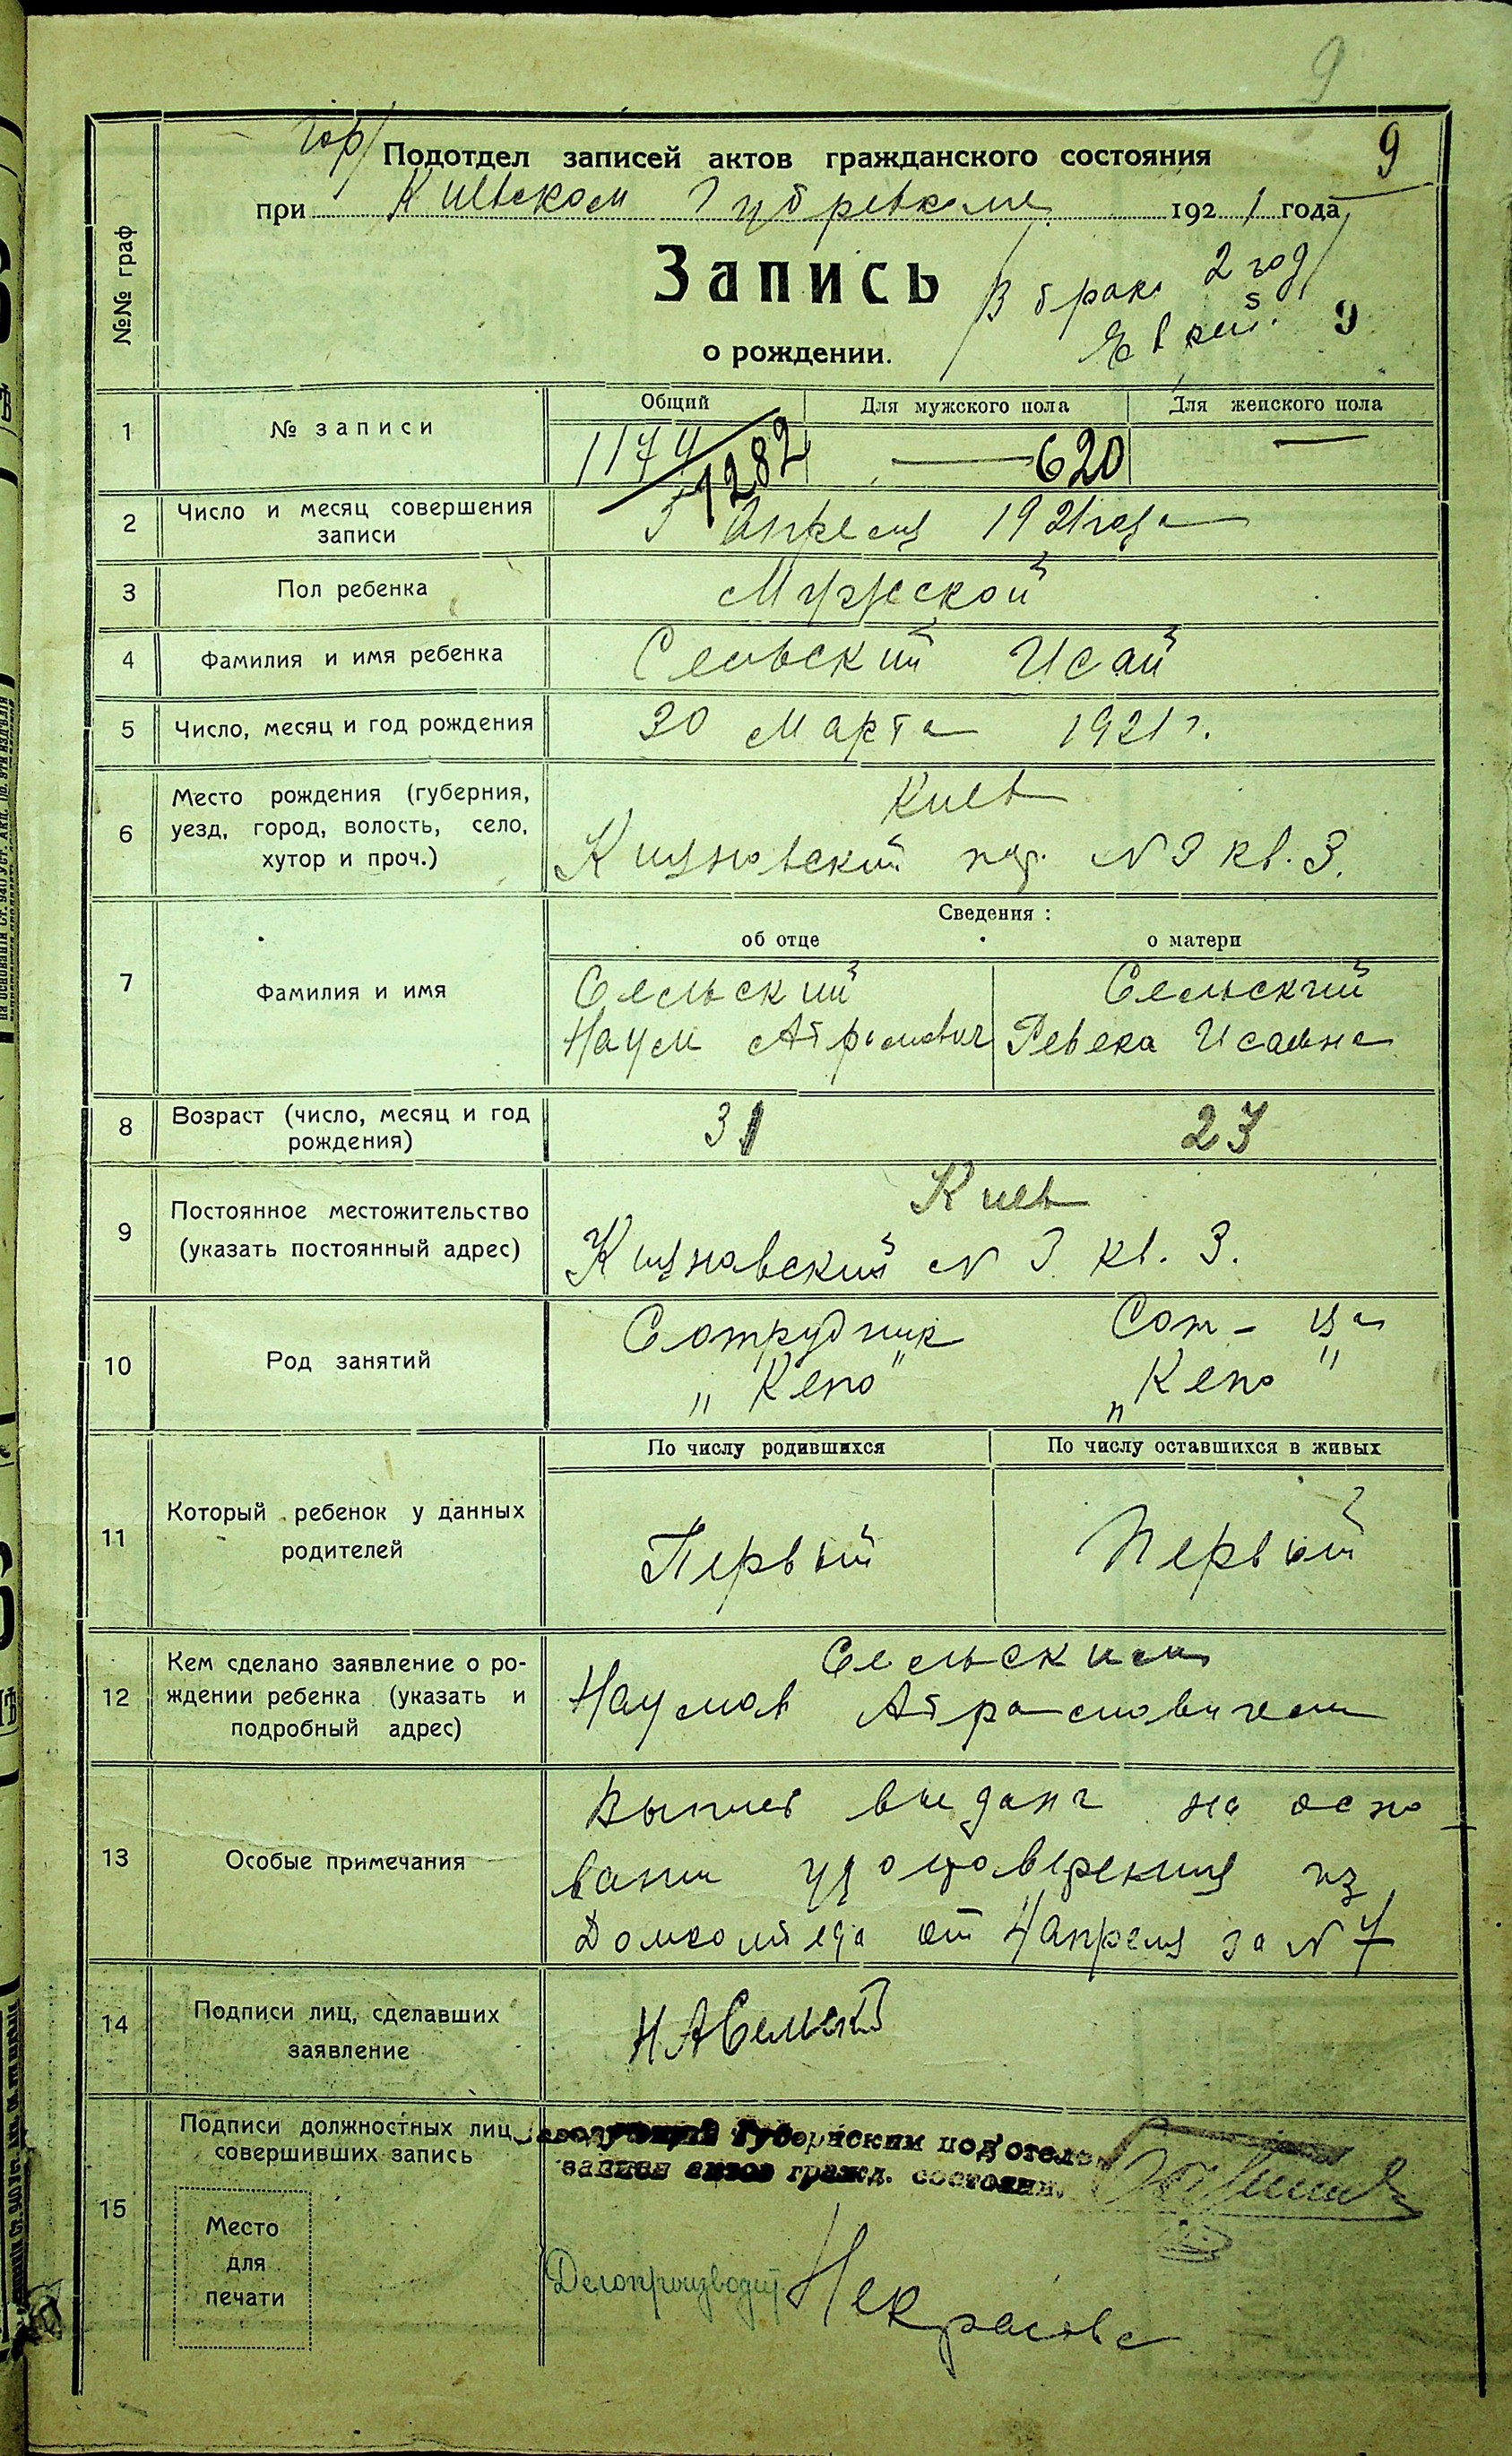 9
гор/ Подотдел записей актов гражданского состояния
9
при Киевском Губревкоме 1921 года
Запись
о рождении.
/В браке 2 год/
Еврей.
9
№№ граф
1 № записи
Общий Для мужского пола Для женского пола
1174 1282 — 620 —
2 Число и месяц совершения
записи
5 Апреля 1921 года
3 Пол ребенка Мужской
4 Фамилия и имя ребенка Сельский Исай
5 Число, месяц и год рождения 30 Марта 1921 г.
6 Место рождения (губерния,
уезд, город, волость, село,
хутор и проч.)
Киев
№ 3 кв. 3.
Сведения :
об отце о матери
7 Фамилия и имя
Сельский Сельский
Наум Абрамович Ревека Исаевна
8 Возраст (число, месяц и год
рождения)
31 27
9 Постоянное местожительство
(указать постоянный адрес)
Киев
№ 3 кв. 3.
10 Род занятий
Сотрудник Сот-ца
„Кепо" „Кепо"
11 Который ребенок у данных
родителей
По числу родившихся По числу оставшихся в живых
Первый Первый
12 Кем сделано заявление о ро-
ждении ребенка (указать и
подробный адрес)
Сельским
Наумов Абрамовичем
13 Особые примечания
Выпись выдана на осно
вании удостоверения из
Домкомтеда от 4 апреля за № 7
14 Подписи лиц, сделавших
заявление
Н А Сельский
15 Подписи должностных лиц,
совершивших запись
Заведующий Губернским под'отделом
записи актов гражд. состояни.
Место
для
печати
Делопроизводит Некрасова